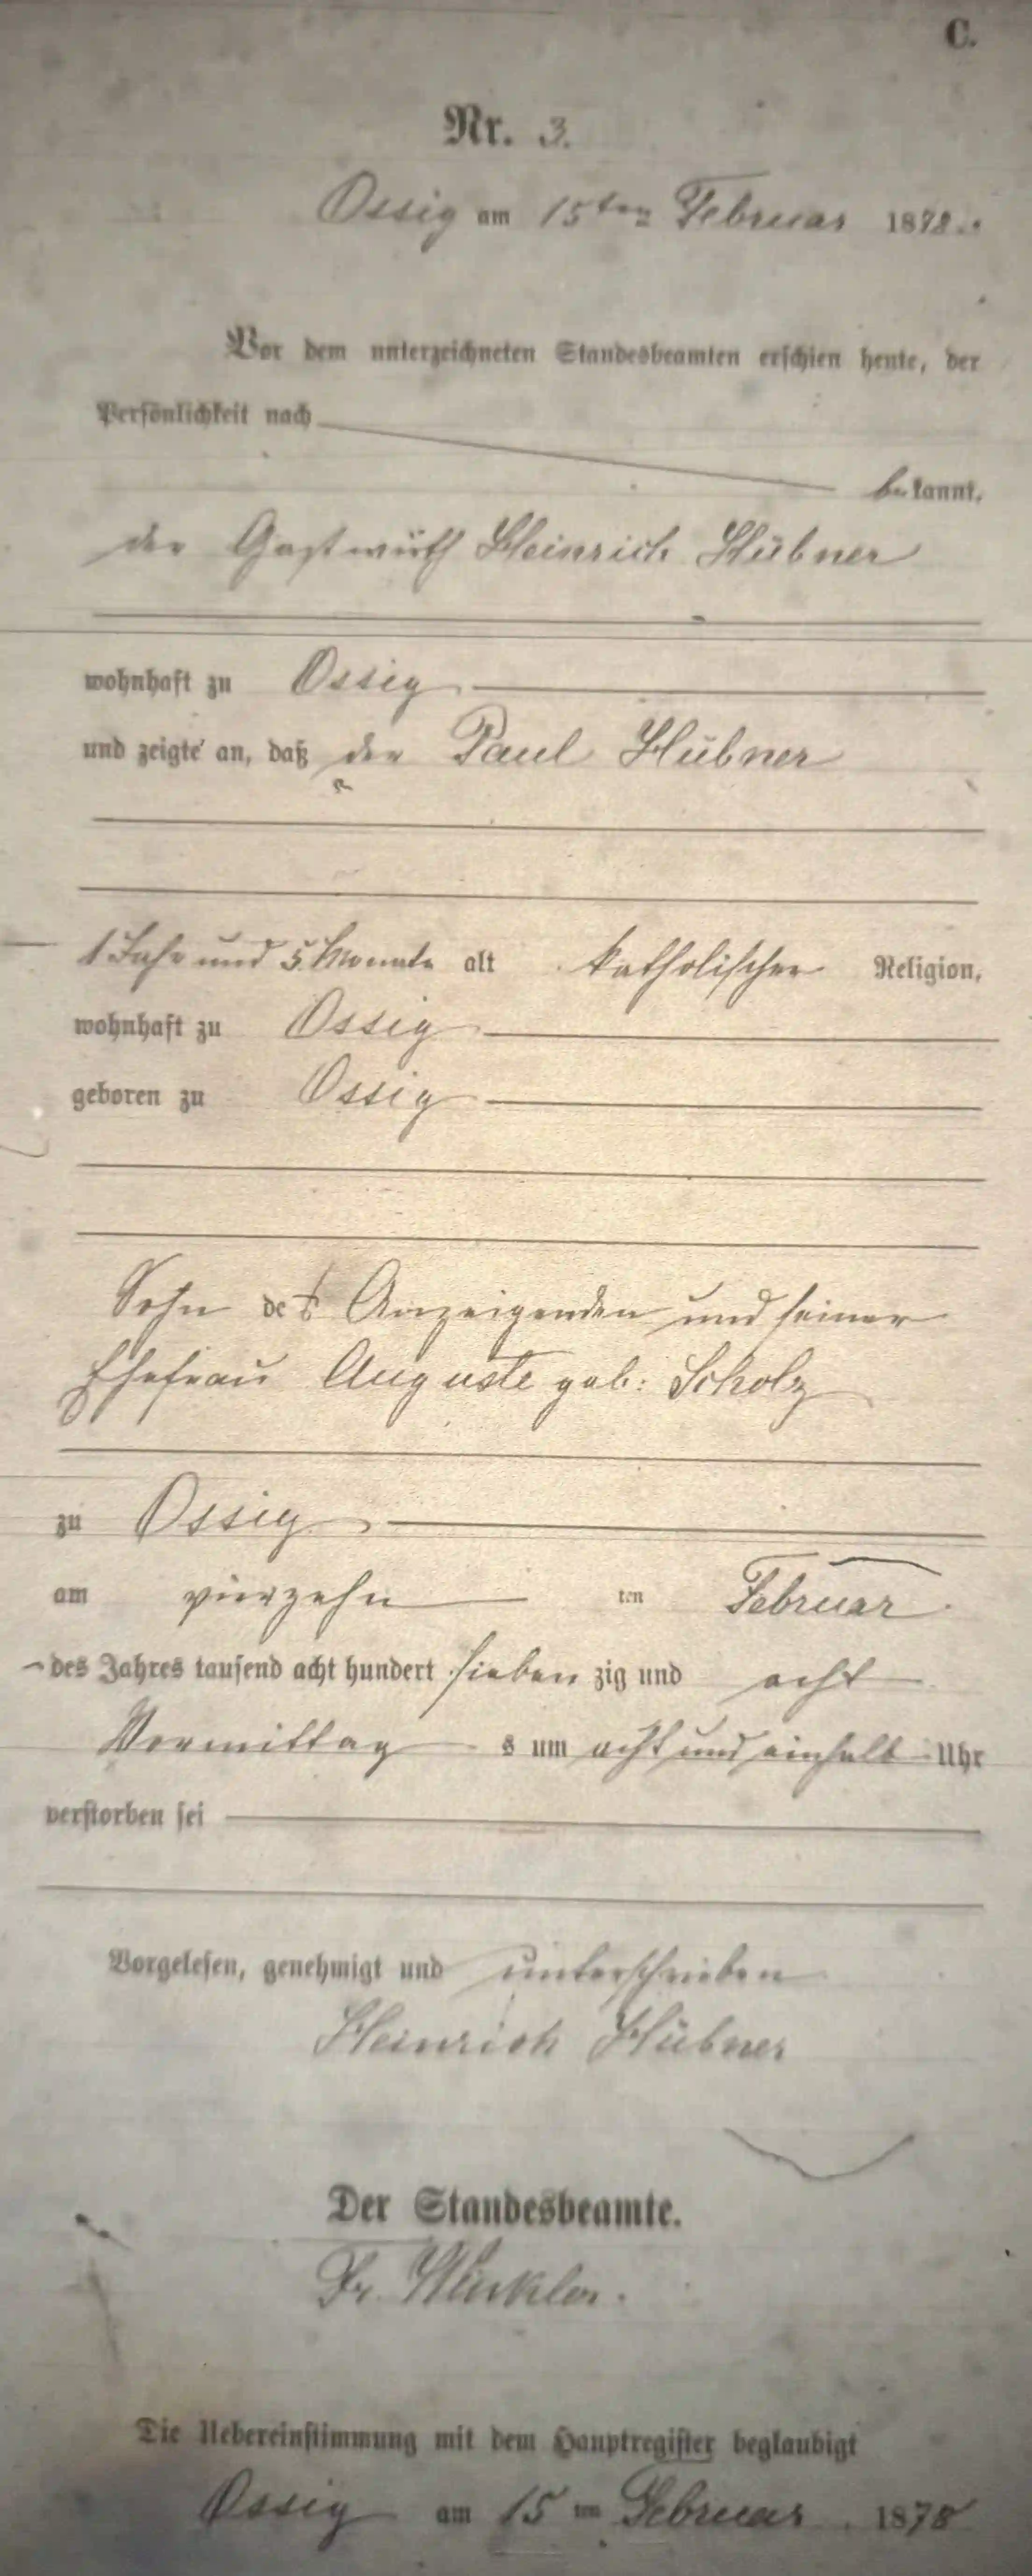 C.
Nr. 3.
Ossig am 15ten Februar 1878.
Vor dem unterzeichneten Standesbeamten erschien heute, der
Persönlichkeit nach
bekannt,
der Gastwirth Heinrich Hübner
wohnhaft zu Ossig
und zeigte an, daß der Paul Hübner
1 Jahr und 5 Monate alt katholischer Religion,
wohnhaft zu Ossig
geboren zu Ossig
Sohn des Anzeigenden und seiner
Ehefrau Auguste geb: Scholz
zu Ossig
am vierzehn ten Februar
des Jahres tausend acht hundert sieben zig und acht
Vormittag s um acht und einhalb Uhr
verstorben sei
Vorgelesen, genehmigt und unterschrieben
Heinrich Hübner
Der Standesbeamte.
Fr.
Die Uebereinstimmung mit dem Hauptregister beglaubigt
Ossig am 15 ten Februar 1878